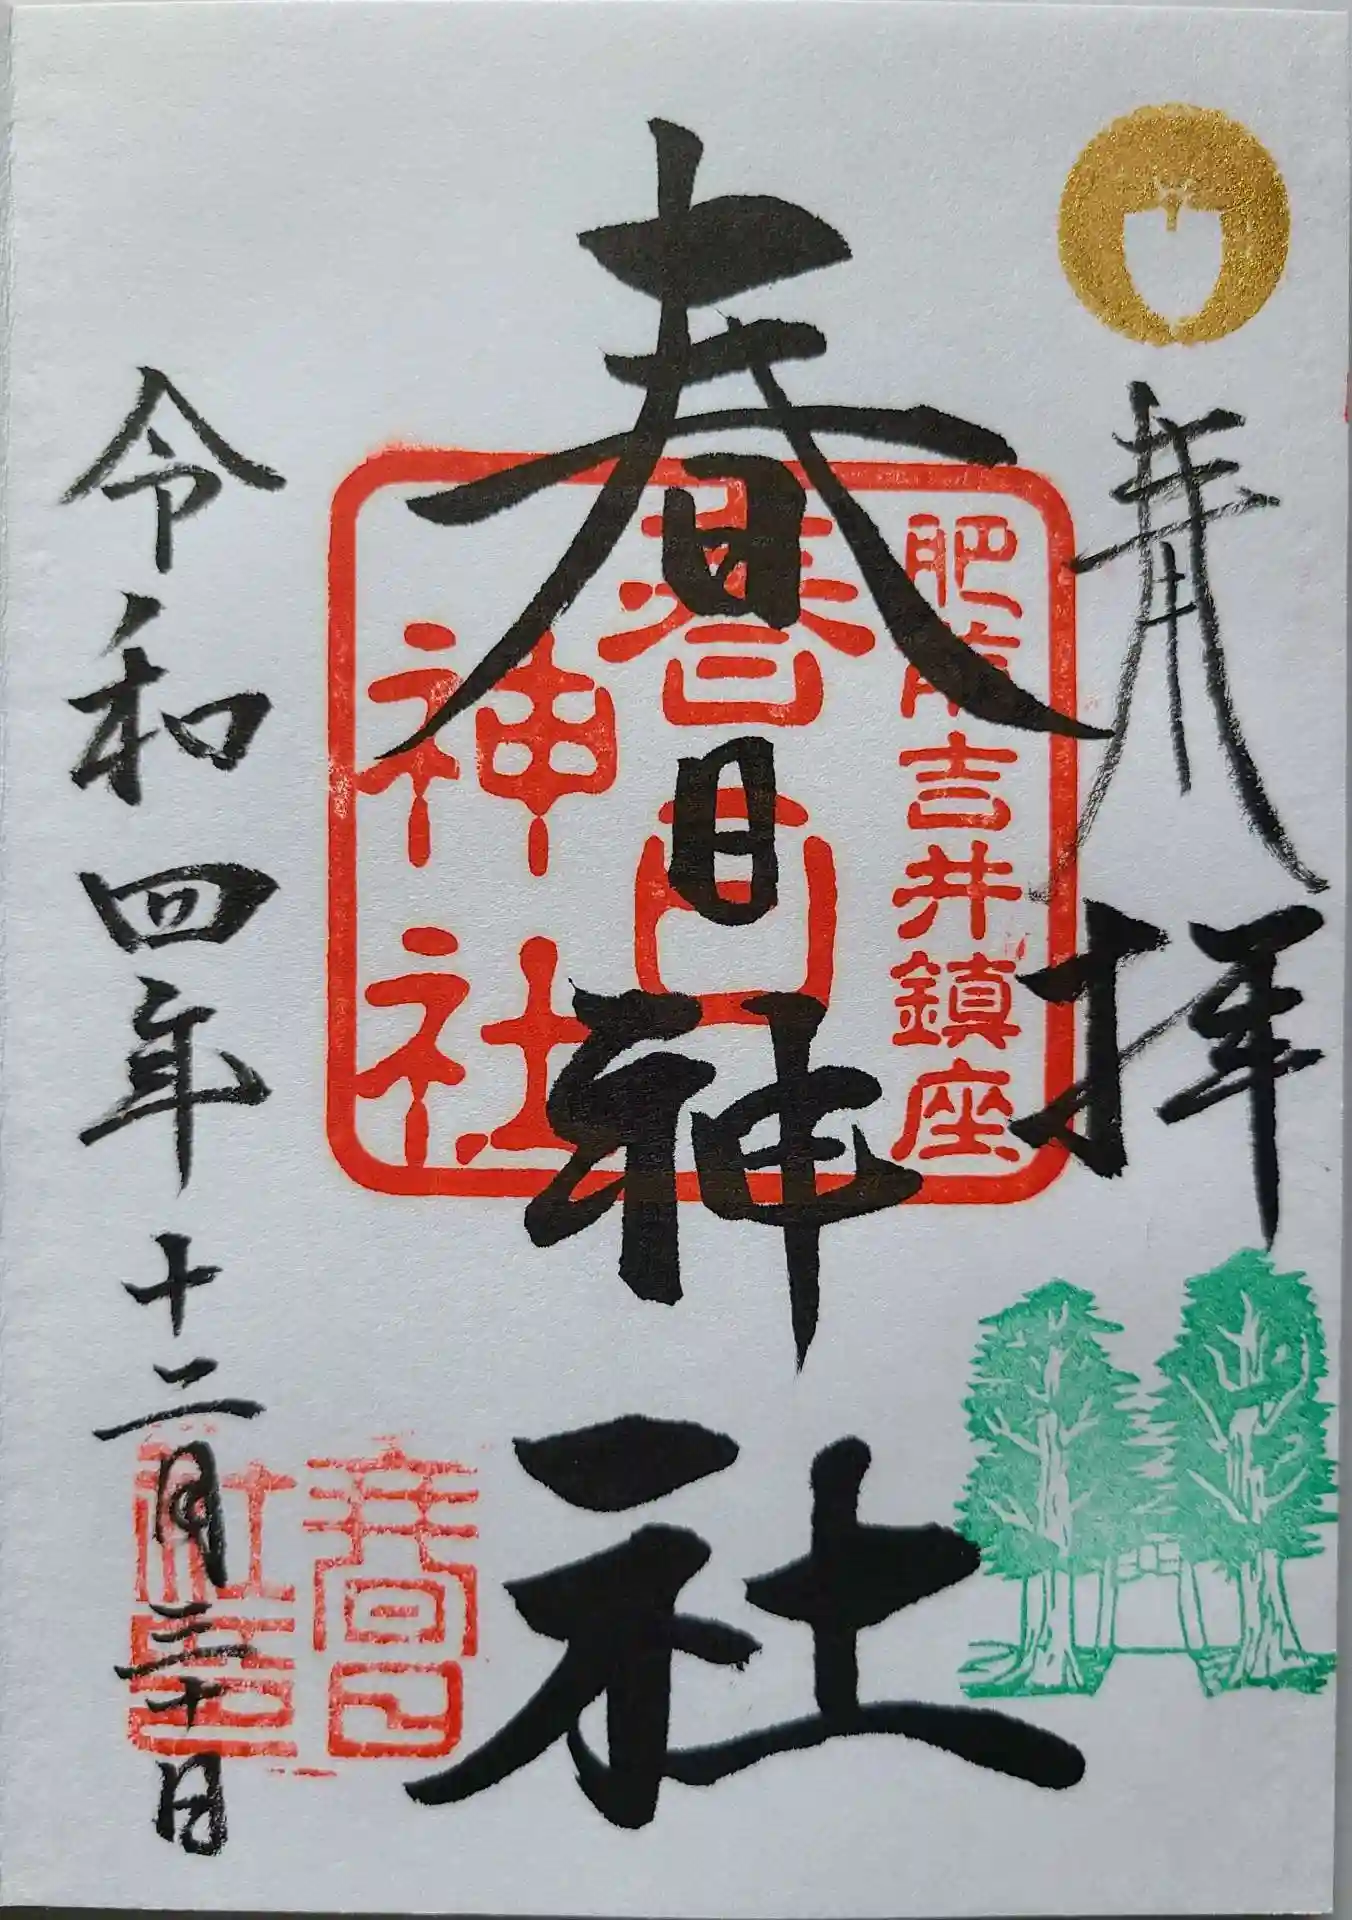 奉拝
春日神社
肥前吉井鎮座
春日
神社
令和四年十二月三十日
春日
社